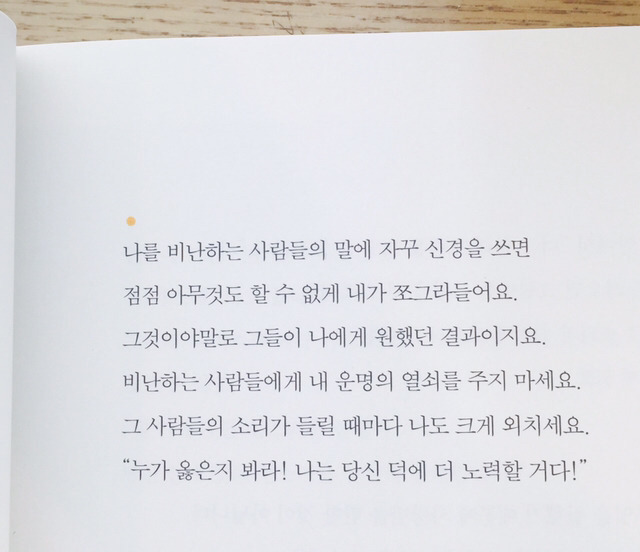 나를 비난하는 사람들의 말에 자꾸 신경을 쓰면
점점 아무것도 할 수 없게 내가 쪼그라들어요.
그것이야말로 그들이 나에게 원했던 결과이지요.
비난하는 사람들에게 내 운명의 열쇠를 주지 마세요.
그 사람들의 소리가 들릴 때마다 나도 크게 외치세요.
“누가 옳은지 봐라! 나는 당신 덕에 더 노력할 거다!”